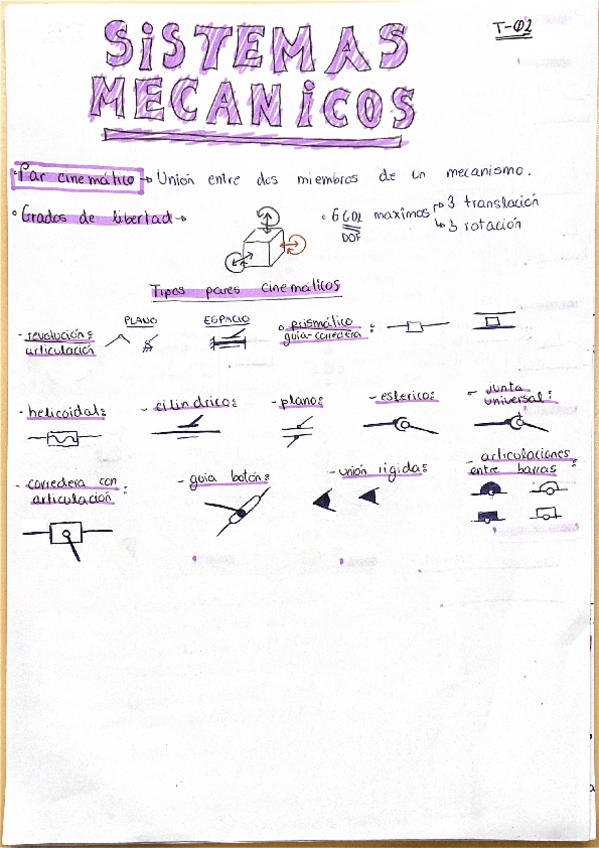 T-02
SiSTEMAS
MECANiCOS
• Par cinemático → Unión entre dos miembros de un mecanismo.
• Grados de libertad →
• 6 GDL maximos → 3 translación
↳ 3 rotación
DOF
Tipos pares cinematicos
- revolución: articulación
PLANO
ESPACIO
○ prismático: guia-corredera
- helicoidal:
- cilindrico:
- plano:
- esferico:
- Junta universal:
- corredera con articulación:
- guia botón:
- unión rigida:
- articulaciones entre barras: